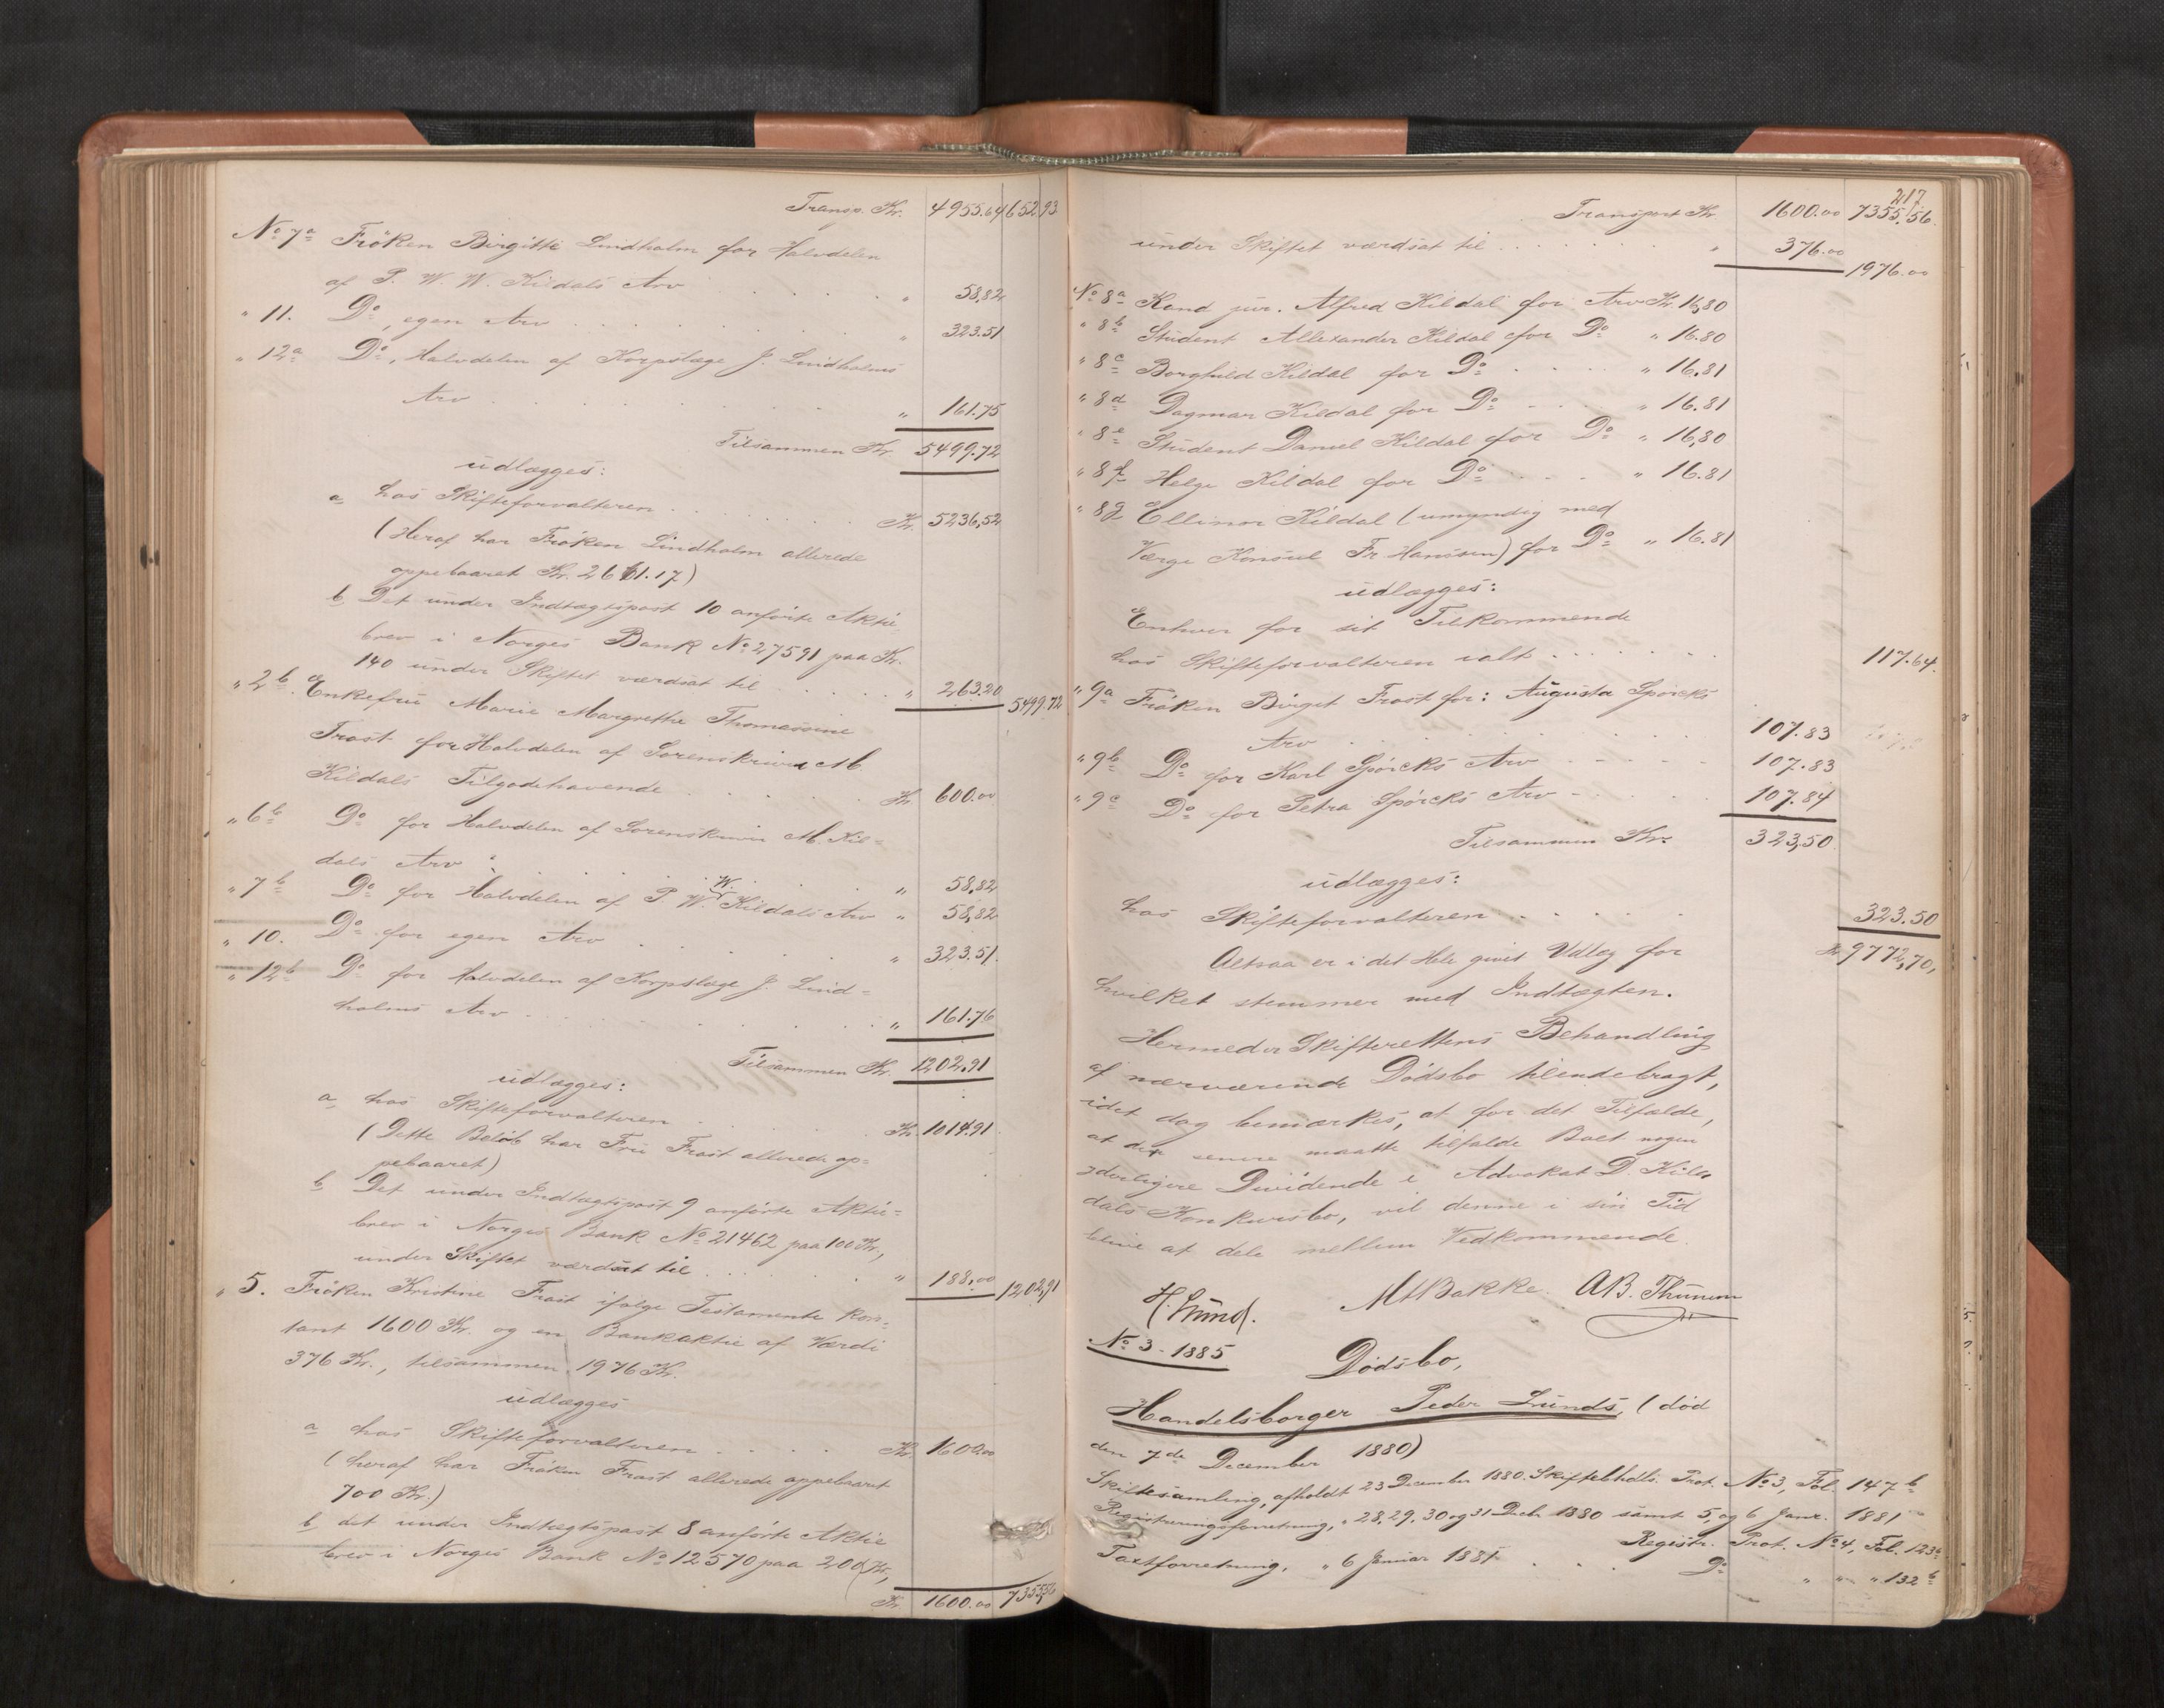 Transp. Kr. 4955.64 652.93
No 7a Fröken Birgitte Lindholm for Halvdelen
af P. W. W. Kildals Arv . . . . " 58,82
" 11. Do, egen Arv . . . . " 323.51
" 12a Do, Halvdelen af Korpslæge J. Lindholms
Arv . . . . " 161.75
Tilsammen Kr. 5499.72
udlægges:
a, hos Skifteforvalteren . . . . Kr. 5236,52
(Heraf har Fröken Lindholm allerede
oppebaaret Kr. 2661.17)
b, Det under Indtægtspost 10 anförte Aktie
brev i Norges Bank No 27591 paa Kr.
140 under Skiftet værdsat til . . . . " 263.20 5499.72
" 2b. Enkefru Marie Margrethe Thomassine
Frost for Halvdelen af Sorenskriver M
Kildals Tilgodehavende . . . . Kr. 600.00
" 6b Do for Halvdelen af Sorenskriver M. Kil=
dals Arv . . . . " 58,82
" 7b Do for Halvdelen af P. W. W. Kildals Arv " 58,82
" 10. Do for egen Arv . . . . " 323.51.
" 12b Do for Halvdelen af Korpslæge J. Lind=
holms Arv . . . . " 161.76
Tilsammen Kr. 1202.91
udlægges:
a, hos Skifteforvalteren . . . . Kr. 1014.91
(Dette Belöb har Fru Frost allerede op=
pebaaret)
b Det under Indtægtspost 9 anförte Aktie=
brev i Norges Bank No 21462 paa 100 Kr.,
under Skiftet værdsat til . . . . " 188.00 1202,91
" 5. Fröken Kristine Frost ifölge Testamente kon=
tant 1600 Kr. og en Bankaktie af Værdi
376 Kr., tilsammen 1976 Kr.
udlægges
a hos Skifteforvalteren . . . . Kr. 1600.00
(heraf har Fröken Frost allerede oppebaaret
700 Kr.)
b, det under Indtægtspost 8 anförte Aktie
brev i Norges Bank No 12570 paa 200 Kr.,
Kr. 1600.00 7355,56
217
Transport Kr. 1600.00 7355.56.
under Skiftet værdsat til . . . . " 376.00 1976.00
No 8a Kand jur. Alfred Kildal for Arv Kr. 16,80
" 8b Student Allexander Kildal for Do " 16.80
" 8c Borghild Kildal for Do . . . . " 16.81
" 8d Dagmar Kildal for Do . . . " 16.81
" 8e Student Daniel Kildal for Do " 16,80
" 8f Helge Kildal for Do . . . . " 16.81
" 8g Ellinor Kildal (umyndig med
Værge Konsul Fr. Hanssen) for Do " 16.81
udlægges:
Enhver for sit Tilkommende
hos Skifteforvalteren ialt . . . . 117.64.
" 9a Fröken Birget Frost for: Augusta Spörcks
Arv . . . . 107.83
" 9b Do for Karl Spörcks Arv . . . . 107.83
" 9c Do for Petra Spörcks Arv . . . . 107.84
Tilsammen Kr. 323,50
udlægges:
hos Skifteforvalteren . . . . 323.50
Altsaa er i det Hele givet Udlæg for Kr. 9772,70,
hvilket stemmer med Indtægten.
Hermed er Skifterettens Behandling
af nærværende Dödsbo tilendebragt,
idet dog bemærkes, at for det Tilfælde,
at der senere maatte tilfalde Boet nogen
yderligere Dividende i Advokat D. Kil=
dals Konkursbo, vil denne i sin Tid
blive at dele mellem Vedkommende.
H. Lund. M A Bakke. A B. Thunem
No 3 - 1885
Dödsbo,
Handelsborger Peder Lunds, (död
den 7de December 1880)
Skiftesamling, afholdt 23 December 1880. Skiftebhdls. Prot. No 3, Fol. 147b
Registreringsforretning, " 28, 29, 30 og 31 Decbr 1880 samt 5, og 6 Janr. 1881
Registr. Prot. No 4, Fol. 123b
Taxtforretning, " 6 Januar 1881 . . . Do " " " 132b